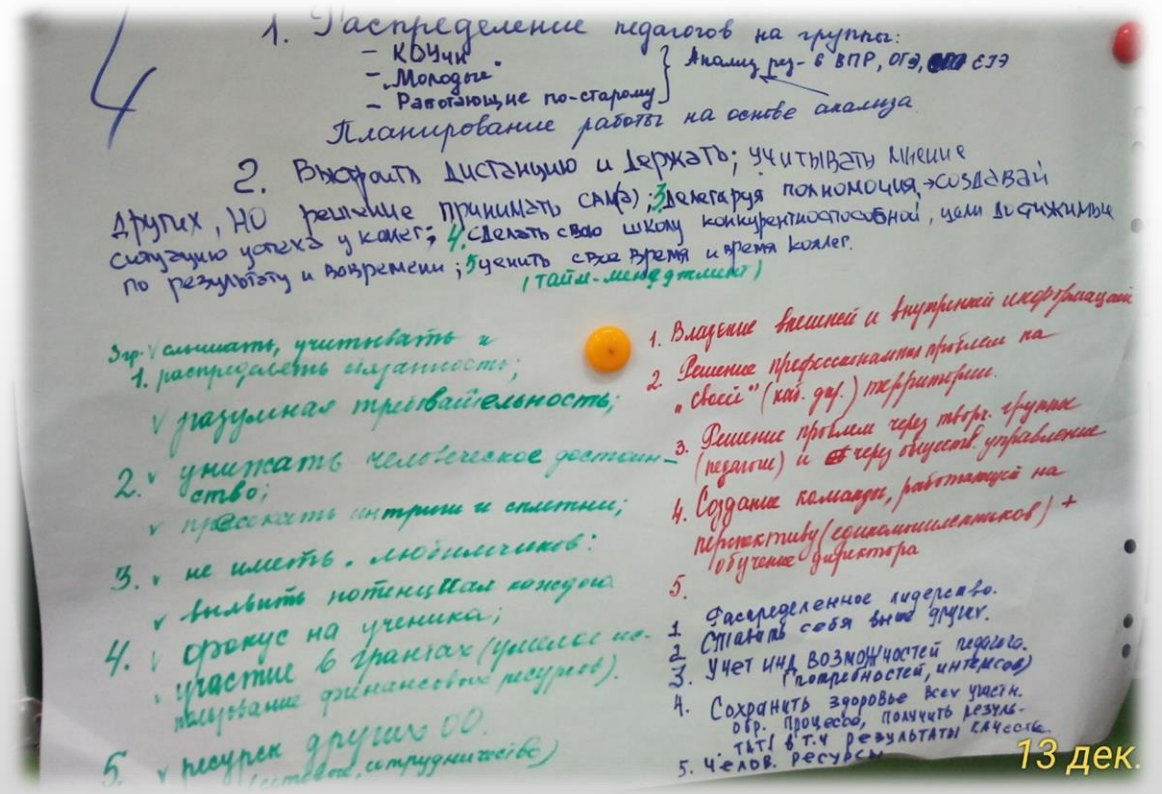 4
1. Распределение педагогов на группы:
– КОУчи
– „Молодые"
– Работающие по-старому
Анализ рез- в ВПР, ОГЭ, ЕГЭ
Планирование работы на основе анализа
2. Выстроить дистанцию и держать; учитывать мнение
других, но решение принимать сам(а); 3. делегируя полномочия, →создавай
ситуацию успеха у коллег; 4. сделать свою школу конкурентноспособной, цели достижимые
по результату и вовремени; 5 ценить свое время и время коллег.
(тайм-менеджмент)
3 гр. v слышать, учитывать и
1. распределять
v разумная требовательность;
2. v унижать человеческое достоин-
ство;
v пресекать интриги и сплетни;
3. v не иметь "любимчиков:
v выявить потенциал каждого
4. v фокус на ученика;
v участие в грантах (умелое ис-
пользование финансовых ресурсов).
5. v ресурсы других ОО.
(сетевое, сотрудничество)
1. Владение внешней и внутренней информацией
2. Решение профессиональных проблем на
„своей" (каб. дир.) территории.
3. Решение проблем через творч. группы
(педагоги) и через обществ. управление
4. Создание команды, работающей на
перспективу (единомышленников) +
обучение директора
5.
1 Распределенное лидерство.
2 Ставить себя выше других.
3. Учет инд возможностей педагога.
(потребностей, интересов)
4. Сохранить здоровье всех участн.
обр. процесса, получить резуль-
таты в т.ч результаты качества.
5. Челов. ресурсы
13 дек.